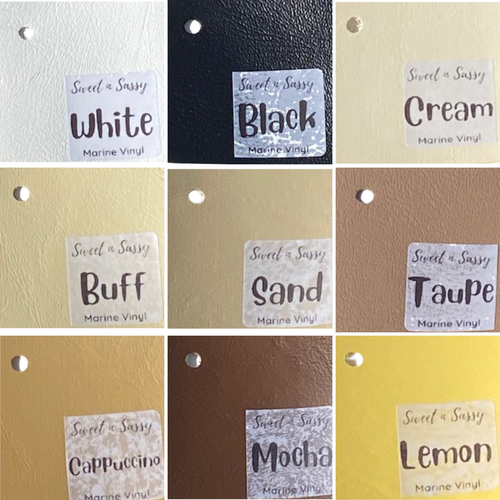 Sweet n Sassy
White
Marine Vinyl
Sweet n Sassy
Black
Marine Vinyl
Sweet n Sassy
Cream
Marine Vinyl
Sweet n Sassy
Buff
Marine Vinyl
Sweet n Sassy
Sand
Marine Vinyl
Sweet n Sassy
Taupe
Marine Vinyl
Sweet n Sassy
Cappuccino
Marine Vinyl
Sweet n Sassy
Mocha
Marine Vinyl
Sweet n Sassy
Lemon
Marine Vinyl